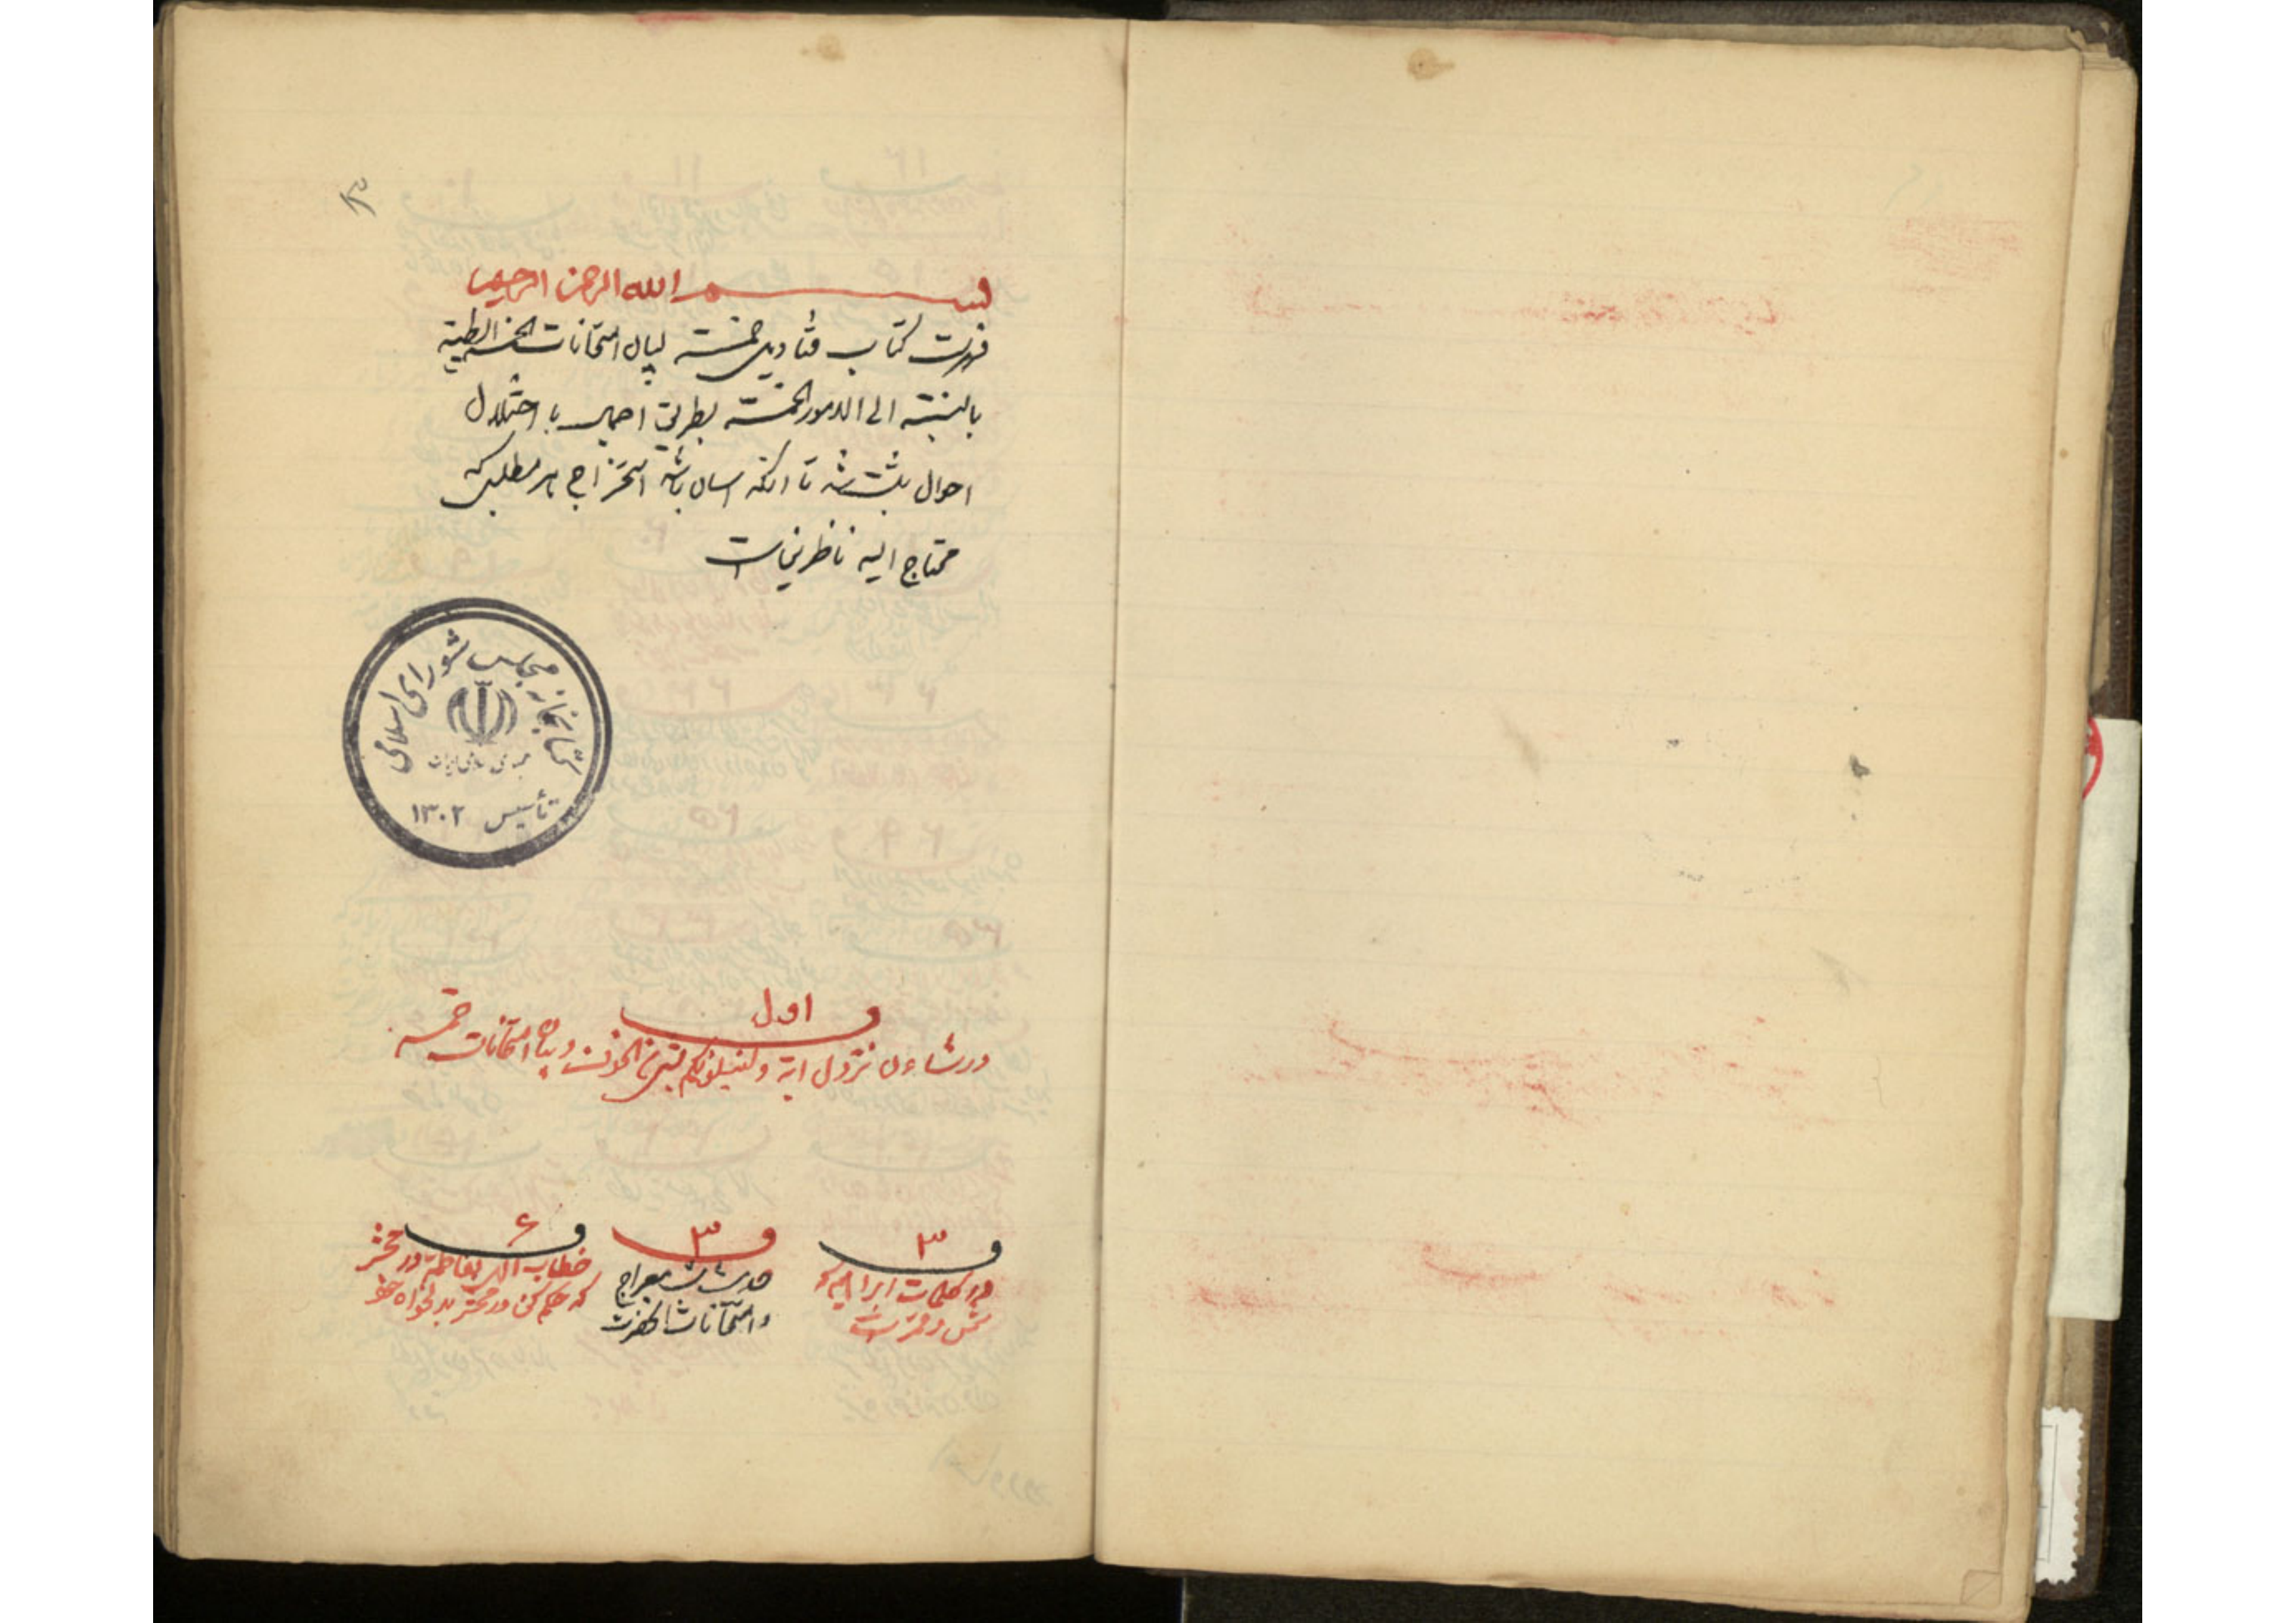 ۳
بسم الله الرحمن الرحیم
فهرست کتاب فتادیل خمسه لبیان امتحانات الخمسة الطیبة
بالنسبة الی الامور الخمسة بطریق اجمال با اختلال
احوال ثبت شد تا انکه اسان باشد استخراج هر مطلبی که
محتاج الیه ناظرین است
کتابخانه مجلس شورای اسلامی
جمهوری اسلامی ایران
تأسیس ۱۳۰۲
ف اول
در شاءن نزول ایة ولنبلونکم بشئ من الخوف و بیان امتحانات خمسه
ف ۲
در کلمات ابراهیم که
شمس و قمر است
ف ۳
حدیث شب معراج
و امتحانات انحضرت
ف ۴
خطاب الهی بفاطمه در محشر
که حکم کن در محشر بدلخواه خود